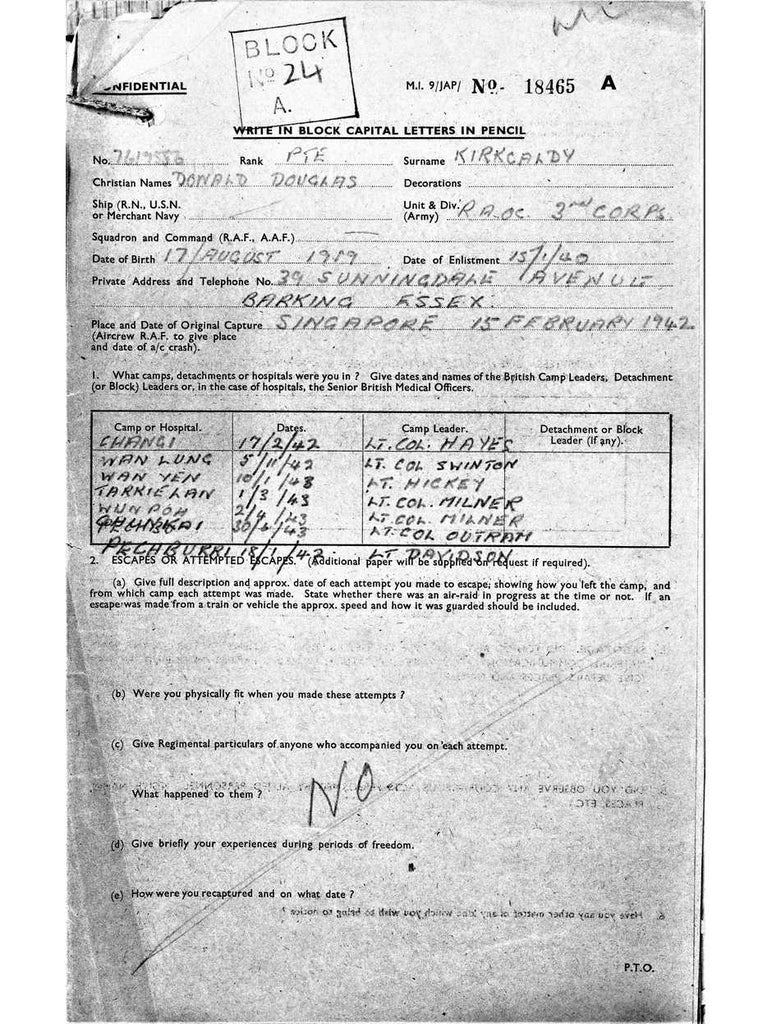 BLOCK
No 24
A.
CONFIDENTIAL
M.I. 9/JAP/ No- 18465 A
WRITE IN BLOCK CAPITAL LETTERS IN PENCIL
No. Rank PTE Surname KIRKCALDY
Christian Names DONALD DOUGLAS Decorations
Ship (R.N., U.S.N. or Merchant Navy
Unit & Div. (Army) R.A.O.C. 3rd CORPS
Squadron and Command (R.A.F., A.A.F.)
Date of Birth 17/AUGUST 1919 Date of Enlistment 15/1/40
Private Address and Telephone No. 39 SUNNINGDALE AVENUE
BARKING ESSEX.
Place and Date of Original Capture SINGAPORE 15 FEBRUARY 1942
(Aircrew R.A.F. to give place
and date of a/c crash).
1. What camps, detachments or hospitals were you in ? Give dates and names of the British Camp Leaders, Detachment
(or Block) Leaders or, in the case of hospitals, the Senior British Medical Officers.
Camp or Hospital. Dates. Camp Leader. Detachment or Block
Leader (if any).
CHANGI 17/2/42 LT. COL. HAYES
WAN LUNG 5/11/42 LT. COL SWINTON
WAN YEN 10/1/43 LT. HICKEY
TARKIELAN 1/3/43 LT. COL. MILNER
WUN POH 2/4/43 LT. COL. MILNER
CHUNKAI 30/6/43 LT. COL OUTRAM
PECHBURRI 18/1/43 LT DAVIDSON
2. ESCAPES OR ATTEMPTED ESCAPES. (Additional paper will be supplied on request if required).
(a) Give full description and approx. date of each attempt you made to escape, showing how you left the camp, and
from which camp each attempt was made. State whether there was an air-raid in progress at the time or not. If an
escape was made from a train or vehicle the approx. speed and how it was guarded should be included.
(b) Were you physically fit when you made these attempts ?
(c) Give Regimental particulars of anyone who accompanied you on each attempt.
What happened to them ? NO
(d) Give briefly your experiences during periods of freedom.
(e) How were you recaptured and on what date ?
P.T.O.